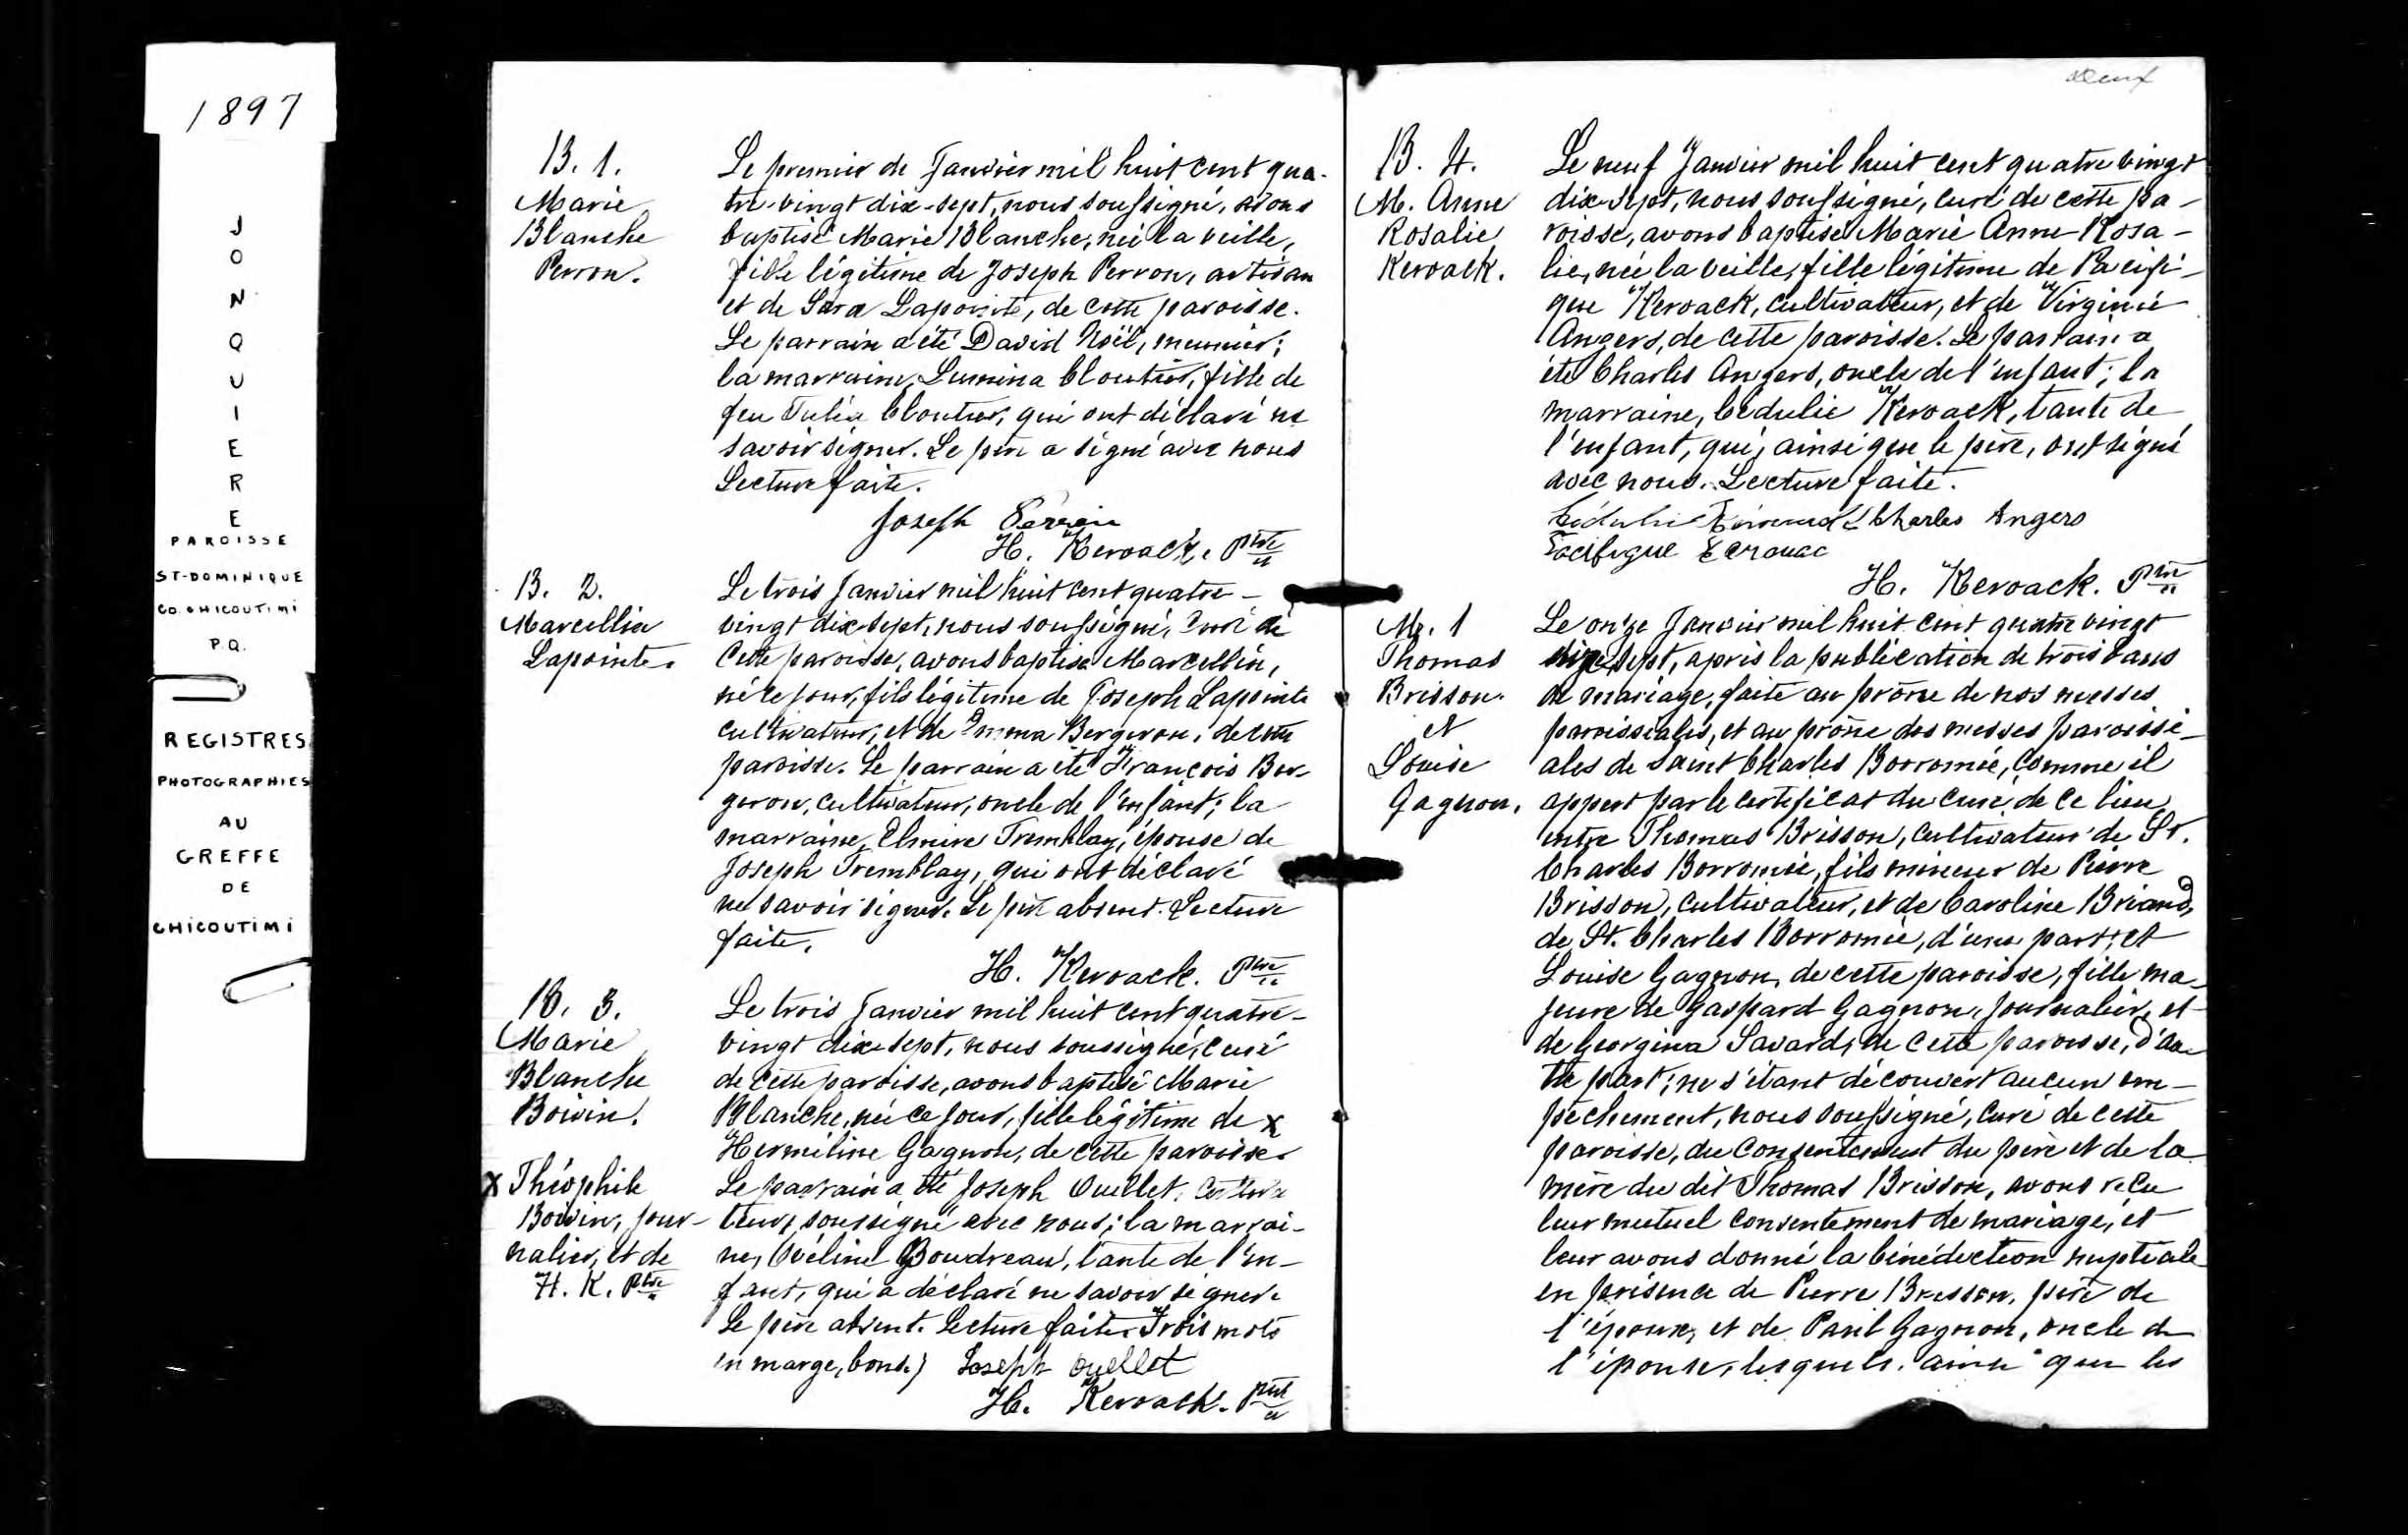 1897
JONQUIERE
PAROISSE
ST-DOMINIQUE
CO. CHICOUTIMI
P.Q.
REGISTRES
PHOTOGRAPHIES
AU
GREFFE
DE
CHICOUTIMI
B. 1.
Marie
Blanche
Perron.
Le premier de Janvier mil huit cent qua-
tre-vingt dix-sept, nous soussigné, avons
baptisé Marie Blanche, née la veille,
fille légitime de Joseph Perron, artisan
et de Sara Lapointe, de cette paroisse.
Le parrain a été David Noël, meunier;
la marraine, Lumina Cloutier, fille de
feu Cloutier, qui ont déclaré ne
savoir signer. Le père a signé avec nous
Lecture faite.
Joseph Perron
H. Kervack. Ptre
B. 2.
Marcellin
Lapointe.
Le trois Janvier mil huit cent quatre-
vingt dix-sept, nous soussigné, Curé de
Cette paroisse, avons baptisé Marcellin,
né ce jour, fils légitime de Joseph Lapointe
cultivateur, et de Emma Bergeron, de cette
paroisse. Le parrain a été François Ber-
geron, cultivateur, oncle de l'enfant; la
marraine, Elmire Tremblay, épouse de
Joseph Tremblay, qui ont déclaré
ne savoir signer. Le père absent. Lecture
faite.
H. Kervack. Ptre
B. 3.
Marie
Blanche
Boivin.
Le trois Janvier mil huit cent quatre-
vingt dix-sept, nous soussigné, curé
de cette paroisse, avons baptisé Marie
Blanche, née ce jour, fille légitime de x
Herméline Gagnon, de cette paroisse.
x Théophile
Boivin, jour-
nalier, et de
H. K. Ptre
Le parrain a été Joseph Ouellet, cultiva
teur, soussigné avec nous; la marrai-
ne, Ovéline Boudreau, tante de l'en-
fant, qui a déclaré ne savoir signer.
Le père absent. Lecture faite. Trois mots
en marge, bons.) Joseph Ouellet
H. Kervack. Ptre
deux
B. 4.
M. Anne
Rosalie
Kervack.
Le neuf Janvier mil huit cent quatre vingt
dix-sept, nous soussigné, curé de cette pa-
roisse, avons baptisé Marie Anne Rosa-
lie, née la veille, fille légitime de Pacifi-
que Kervack, cultivateur, et de Virginie
Angers, de cette paroisse. Le parrain a
été Charles Angers, oncle de l'enfant; la
marraine, Cédulie Kervack, tante de
l'enfant, qui, ainsi que le père, ont signé
avec nous. Lecture faite.
Cédulie Charles Angers
Pacifique Kerouac
H. Kervack. Ptre
M. 1
Thomas
Brisson.
et
Louise
Gagnon.
Le onze Janvier mil huit cent quatre vingt
dix-sept, après la publication de trois bans
de mariage, faite au prône de nos messes
paroissiales, et au prône des messes paroissi-
ales de Saint Charles Borromée, comme il
appert par le certificat du curé de ce lieu
entre Thomas Brisson, cultivateur de St.
Charles Borromée, fils mineur de Pierre
Brisson, cultivateur, et de Caroline Briand,
de St. Charles Borromée, d'une part; et
Louise Gagnon, de cette paroisse, fille ma-
jeure de Gaspard Gagnon, journalier, et
de Georgina Savard, de cette paroisse, d'au-
tre part; ne s'étant découvert aucun em-
pêchement, nous soussigné, curé de cette
paroisse, du consentement du père et de la
mère du dit Thomas Brisson, avons reçu
leur mutuel consentement de mariage, et
leur avons donné la bénédiction nuptiale
en présence de Pierre Brisson, père de
l'époux, et de Paul Gagnon, oncle de
l'épouse, lesquels, ainsi que les